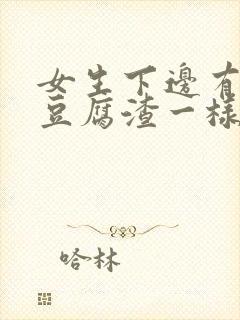 女生下邊有
豆腐渣一樣
哈林